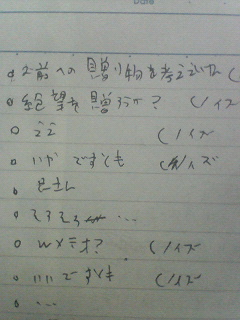 お前への贈り物を考えていた (
絶望を贈ろうか? (ノイズ
ここ (ノイズ
いや ですとも (ノイズ
そろそろ ...
(ノイズ
いいですとも (ノイズ
...